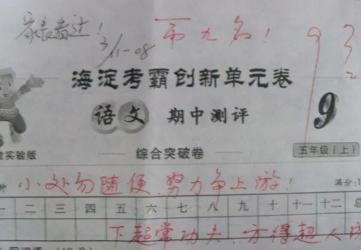 家长看过!
11-08
第九名!
海淀考霸创新单元卷
语文 期中测评
9
实验版
综合突破卷
五年级(上)
小处勿随便,努力争上游!
一 二 三 四 五 六 七 八 九 十 十一 十二 总
下超常功夫 方得超人